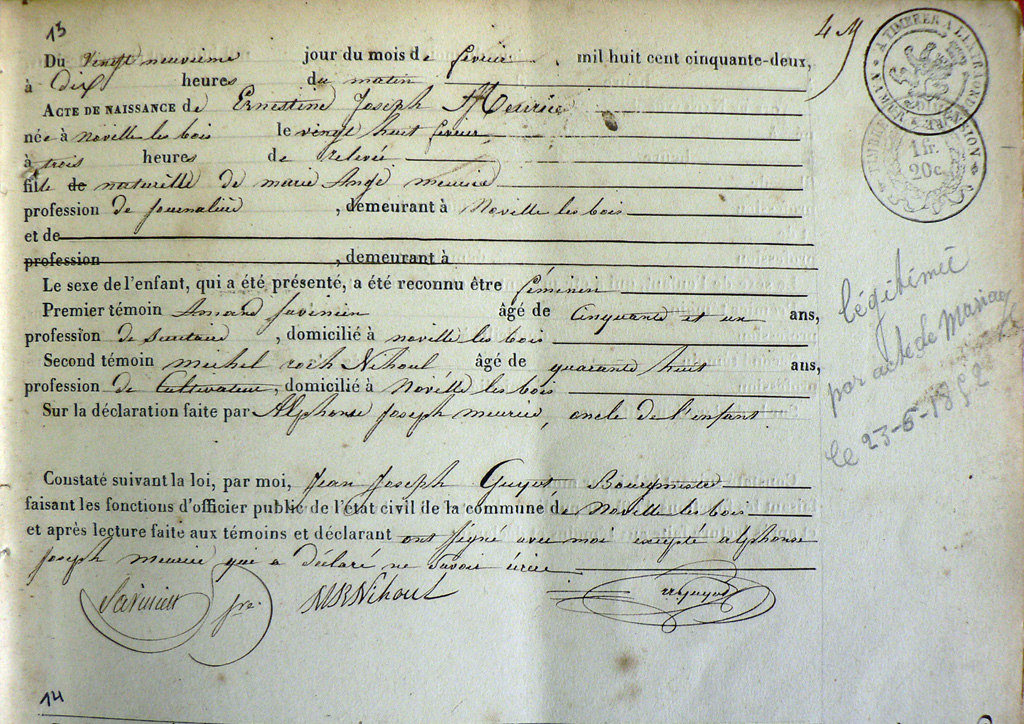 13
4 M
Du vingt neuvième jour du mois de février, mil huit cent cinquante-deux,
à dix heures du matin
ACTE DE NAISSANCE de Ernestine Joseph Meurice
née à noville les bois le vingt huit février
à trois heures de relevée
fille de naturelle de marie Ange meurice
profession de journalière, demeurant à Noville les bois
et de
profession, demeurant à
Le sexe de l'enfant, qui a été présenté, a été reconnu être féminin
Premier témoin Amand Savinien âgé de cinquante et un ans,
profession de, domicilié à noville les bois
Second témoin michel roch Nihoul âgé de quarante huit ans,
profession de Cultivateur, domicilié à Noville les bois
Sur la déclaration faite par Alphonse Joseph meurice, oncle de l'enfant
Constaté suivant la loi, par moi, Jean Joseph Guyot Bourgmestre
faisant les fonctions d'officier public de l'état civil de la commune de Noville les bois
et après lecture faite aux témoins et déclarant ont signé avec moi excepté alphonse
Joseph meurice qui a déclaré ne savoir écrire
Savinien MRNihoul Guyot
A TIMBRER A L'EXTRAORDINAIRE
1 fr.
20 c.
légitimée
par acte de Mariage
le 23-6-1852
14